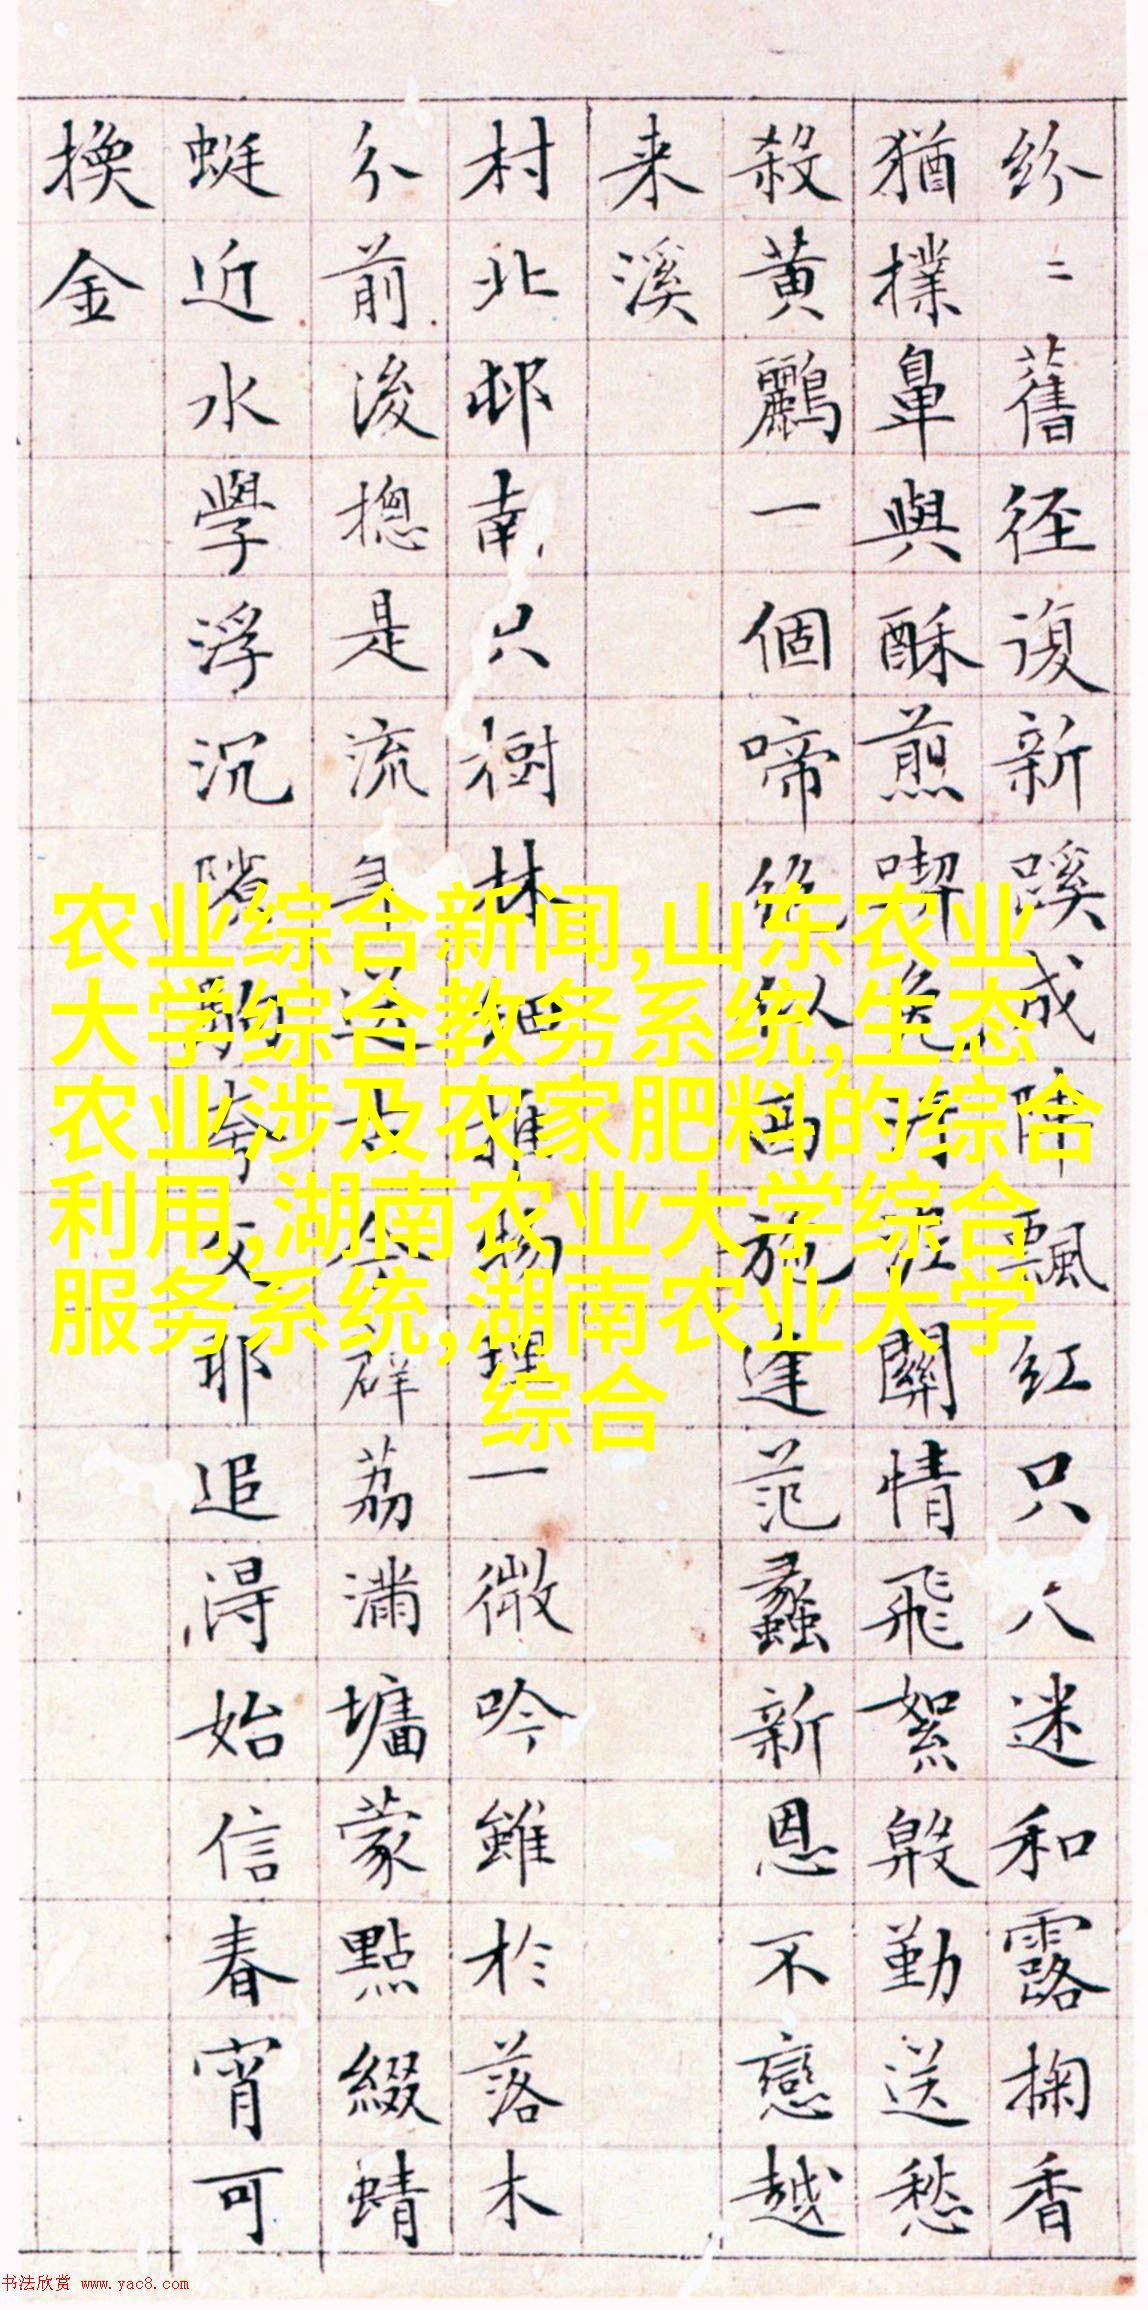 纷二舊径復新蹊成阵飄红只八迷和露掬香
猶撲鼻與酥煎喫免
關情飛絮殿勤送愁
殺黄鸝一個啼絶似西施逢范蠡新恩不戀越
来溪
村北邨南只樹林
一微吟雖於落木
分前後摠是流年送
群荔滿墉蒙點綴蜻
蜓近水學浮沉隙駒夸父耶追得始信春宵可
換金
农业综合新闻,山东农业
大学综合教务系统,生态
农业涉及农家肥料的综合
利用,湖南农业大学综合
服务系统,湖南农业大学
综合
书法欣赏 www.yac8.com